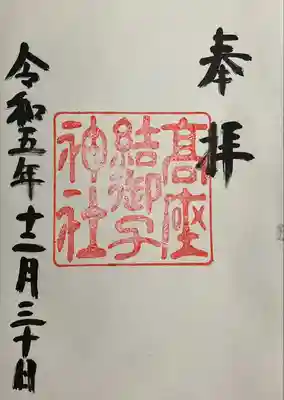 奉拝
高座
結御子
神社
令和五年十二月三十日